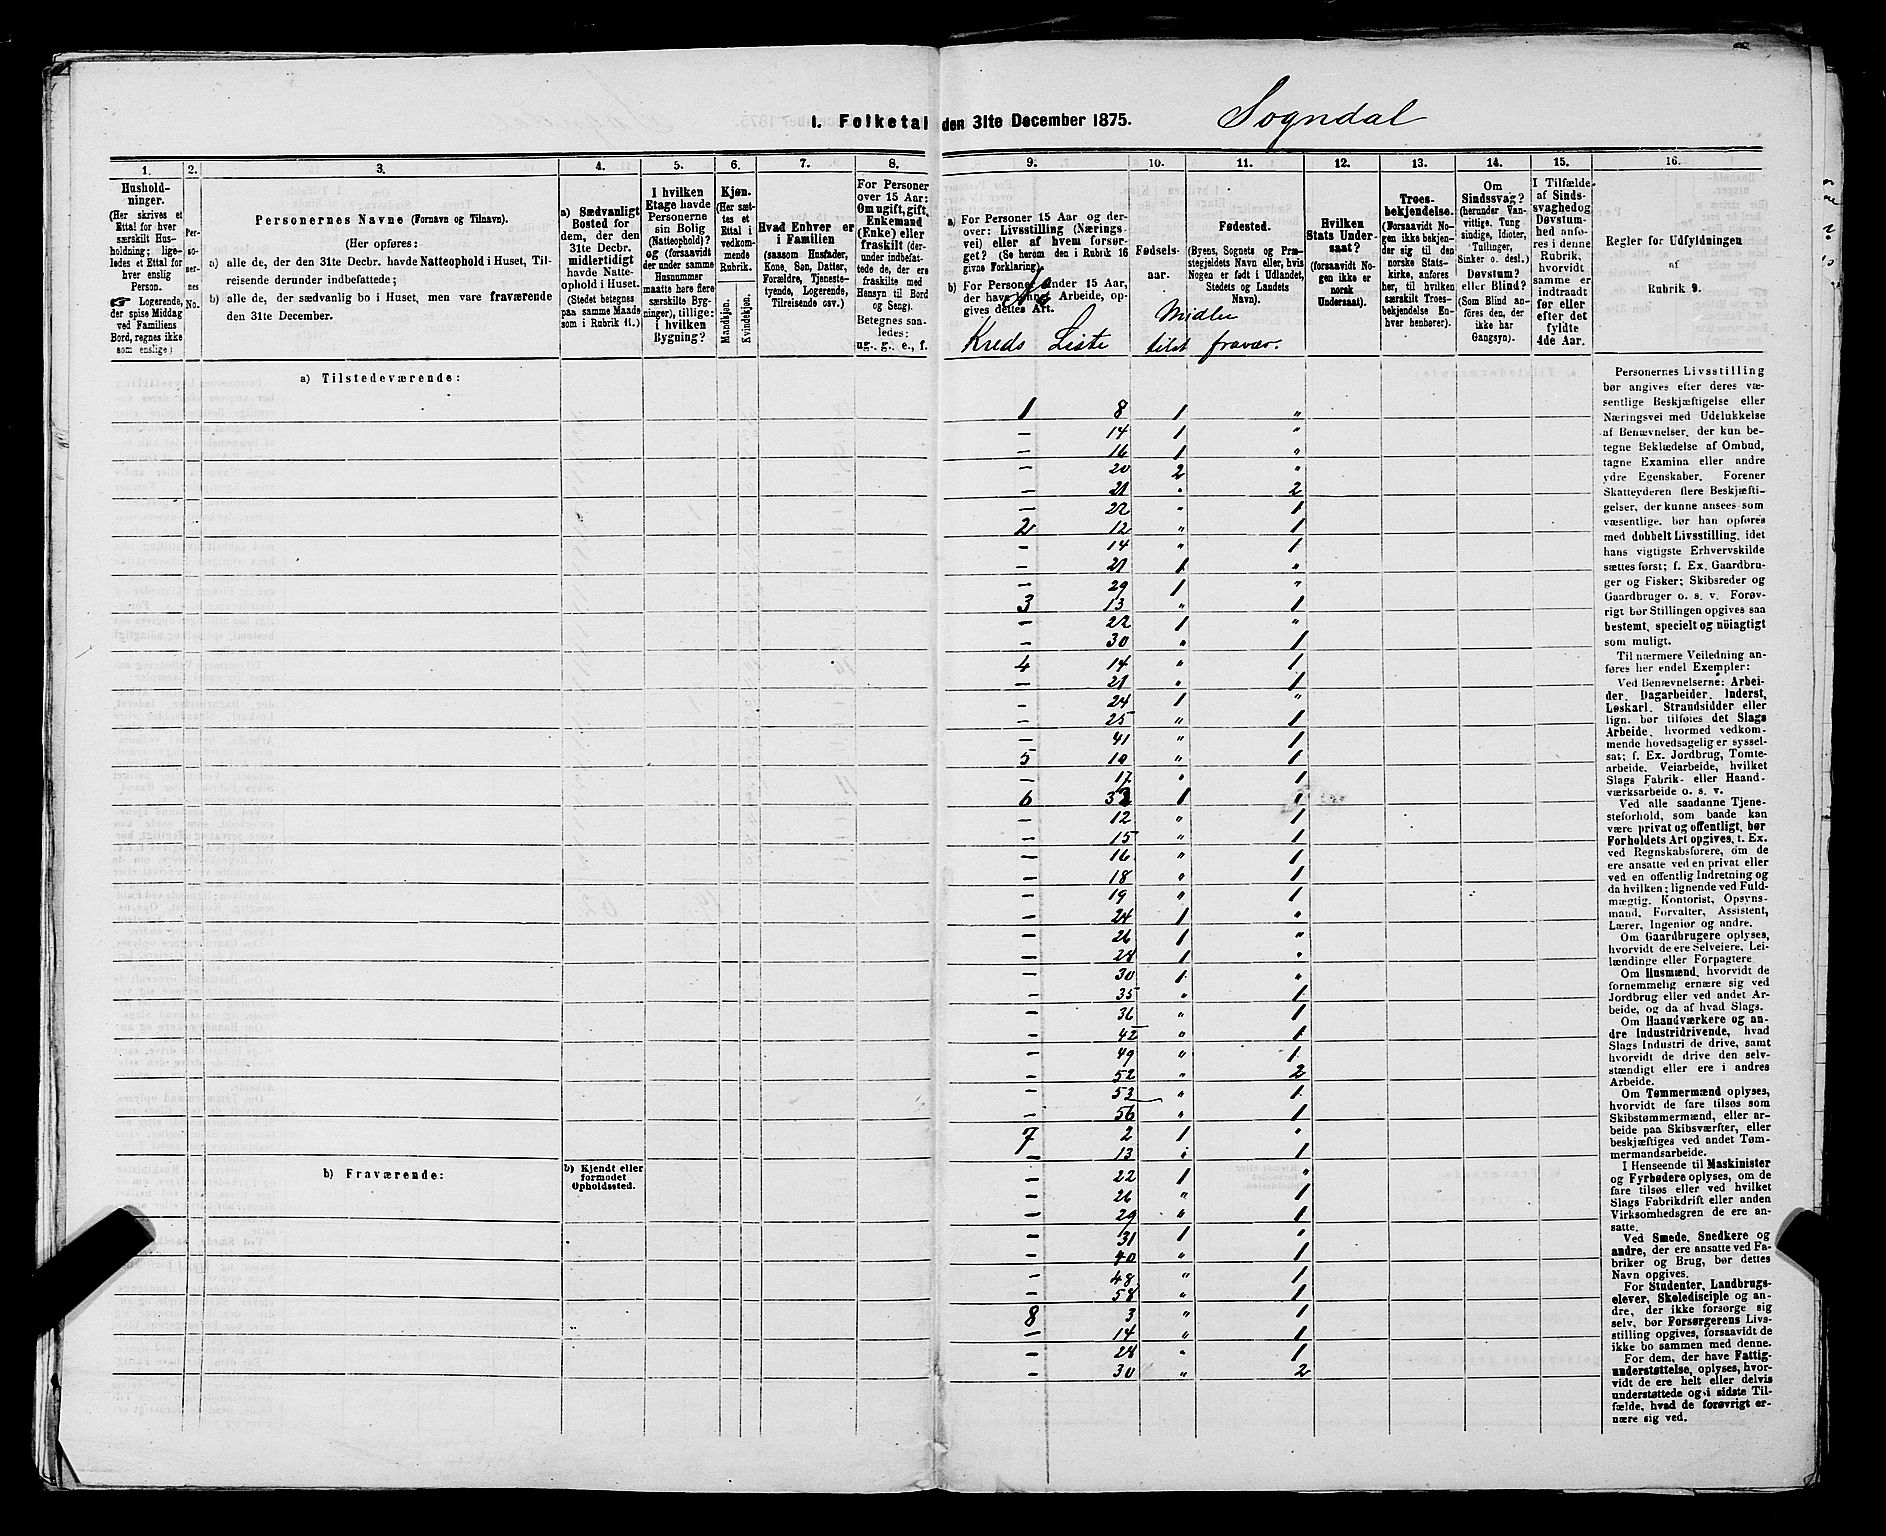 I. Folketal den 31te December 1875.
Sogndal
1.
2.
3.
4.
5.
6.
7.
8.
9.
10.
11.
12.
13.
14.
15.
16.
Hushold-
ninger.
(Her skrives et
Ettal for hver
særskilt Hus-
holdning; lige-
ledes et Ettal for
hver enslig
Person.
☞ Logerende,
der spise Middag
ved Familiens
Bord, regnes ikke
som enslige)
Per-
so-
ner-
nes
No.
Personernes Navne (Fornavn og Tilnavn).
(Her opføres:
a) alle de, der den 31te Decbr. havde Natteophold i Huset, Til-
reisende derunder indbefattede;
b) alle de, der sædvanlig bo i Huset, men vare fraværende
den 31te December.
a) Sædvanligt
Bosted for
dem, der den
31te Decbr.
midlertidigt
havde Natte-
ophold i Huset.
(Stedet betegnes
paa samme Maade
som i Rubrik 11.)
I hvilken
Etage havde
Personerne
sin Bolig
(Natteophold)?
og (forsaavidt
der under samme
Husnummer
maatte høre flere
særskilte Byg-
ninger), tillige:
i hvilken
Bygning?
Kjøn.
(Her sæt-
tes et
Ettal i
vedkom-
mende
Rubrik.
Mandskjøn.
Kvindekjøn.
Hvad Enhver er
i Familien
(saasom Husfader,
Kone, Søn, Datter,
Forældre, Tjeneste-
tyende, Logerende,
Tilreisende osv.)
For Personer
over 15 Aar:
Om ugift, gift,
Enkemand
(Enke) eller
fraskilt (der-
under indbefat-
tede de, der ere
fraskilte med
Hensyn til Bord
og Seng).
Betegnes saa-
ledes:
ug., g., e., f.
a) For Personer 15 Aar og der-
over: Livsstilling (Nærings-
vei) eller af hvem forsør-
get? (Se herom i Rubrik 16
givne Forklaring).
b) For Personer under 15 Aar,
der have Arbeide, op-
gives dettes Art.
Fødsels-
aar.
Fødested.
(Byens, Sognets og Præ-
stegjeldets Navn eller, hvis
Nogen er født i Udlandet,
Stedets og Landets
Navn).
Hvilken
Stats Under-
saat?
(forsaavidt No-
gen ikke er
norsk
Undersaat).
Troes-
bekjendelse.
(Forsaavidt No-
gen ikke bekjen-
der sig til den
norske Stats-
kirke, anføres
her, til hvilken
særskilt Troes-
bekjendelse En-
hver henhører).
Om
Sindssvag?
(herunder Van-
vittige, Tung-
sindige, Idioter,
Tullinger,
Sinker o. desl.)
Døvstum?
eller Blind?
(Som Blind an-
føres den, der
ikke har
Gangsyn).
I Tilfælde
af Sinds-
svaghed og
Døvstum-
hed anfø-
res i denne
Rubrik,
hvorvidt
samme er
indtraadt
før eller
efter det
fyldte
4de Aar.
Regler for Udfyldningen
af
Rubrik 9.
No
Midler
Kreds Liste tilst fravær.
a) Tilstedeværende:
1 8 1 "
— 14 1 "
— 16 1 "
— 20 2 "
— 21 " 2
— 22 " 1
2 12 " 1
— 14 " 1
— 21 1 "
— 29 1 "
3 13 " 1
— 22 1 "
— 30 " 1
4 14 " 1
— 21 " 1
— 24 1 "
— 25 " 1
— 41 " 1
5 10 " 1
— 17 " 1
6 1 "
— 12 " 1
— 15 " 1
— 16 " 1
— 18 " 1
— 19 " 1
— 24 1 "
— 26 1 "
— 28 1 "
— 30 1 "
— 35 " 1
— 36 " 1
— 42 " 1
— 49 " 1
— 52 " 2
— 53 " 1
— 56 " 1
7 2 1 "
— 13 " 1
— 22 1 "
— 26 " 1
— 29 " 1
— 31 1 "
— 40 " 1
— 48 " 1
— 58 " 1
8 3 " 1
— 14 " 1
— 28 " 1
— 30 " 2
b) Fraværende:
b) Kjendt eller
formodet
Opholdssted.
Personernes Livsstilling
bør angives efter deres væ-
sentlige Beskjæftigelse eller
Næringsvei med Udelukkelse
af Benævnelser, der kun be-
tegne Beklædelse af Ombud,
tagne Examina eller andre
ydre Egenskaber. Forener
Skatteyderen flere Beskjæfti-
gelser, der kunne ansees som
væsentlige, bør han opføres
med dobbelt Livsstilling, idet
hans vigtigste Erhvervskilde
sættes først; f. Ex. Gaardbru-
ger og Fisker; Skibsreder og
Gaardbruger o. s. v. Forøv-
rigt bør Stillingen opgives saa
bestemt, specielt og nöiagtigt
som muligt.
Til nærmere Veiledning an-
føres her endel Exempler:
Ved Benævnelserne: Arbei-
der, Dagarbeider, Inderst,
Løskarl, Strandsidder eller
lign. bør tilføies det Slags
Arbeide, hvormed vedkom-
mende hovedsagelig er syssel-
sat; f. Ex. Jordbrug, Tomte-
arbeide, Veiarbeide, hvilket
Slags Fabrik- eller Haand-
værksarbeide o. s. v.
Ved alle saadanne Tjene-
steforhold, som baade kan
være privat og offentligt, bør
Forholdets Art opgives, t. Ex.
ved Regnskabsførere, om de
ere ansatte ved en privat eller
ved en offentlig Indretning og
da hvilken; lignende ved Fuld-
mægtig, Kontorist, Opsyns-
mand, Forvalter, Assistent,
Lærer, Ingeniør og andre.
Om Gaardbrugere oplyses,
hvorvidt de ere Selveiere, Lei-
lændinge eller Forpagtere.
Om Husmænd, hvorvidt de
fornemmelig ernære sig ved
Jordbrug eller ved andet Ar-
beide, og da af hvad Slags.
Om Haandværkere og an-
dre Industridrivende, hvad
Slags Industri de drive, samt
hvorvidt de drive den selv-
stændigt eller ere i andres
Arbeide.
Om Tømmermænd oplyses,
hvorvidt de fare tilsøs som
Skibstømmermænd, eller ar-
beide paa Skibsværfter, eller
beskjæftiges ved andet Tøm-
mermandsarbeide.
I Henseende til Maskinister
og Fyrbødere oplyses, om de
fare tilsøs eller ved hvilket
Slags Fabrikdrift eller anden
Virksomhedsgren de ere an-
satte.
Ved Smede, Snedkere og
andre, der ere ansatte ved Fa-
briker og Brug, bør dettes
Navn opgives.
For Studenter, Landbrugs-
elever, Skoledisciple og an-
dre, der ikke forsørge sig
selv, bør Forsørgerens Livs-
stilling opgives, forsaavidt de
ikke bo sammen med denne.
For dem, der have Fattig-
understøttelse, oplyses, hvor-
vidt de ere helt eller delvis
understøttede og i sidste Til-
fælde, hvad de forøvrigt er-
nære sig ved.